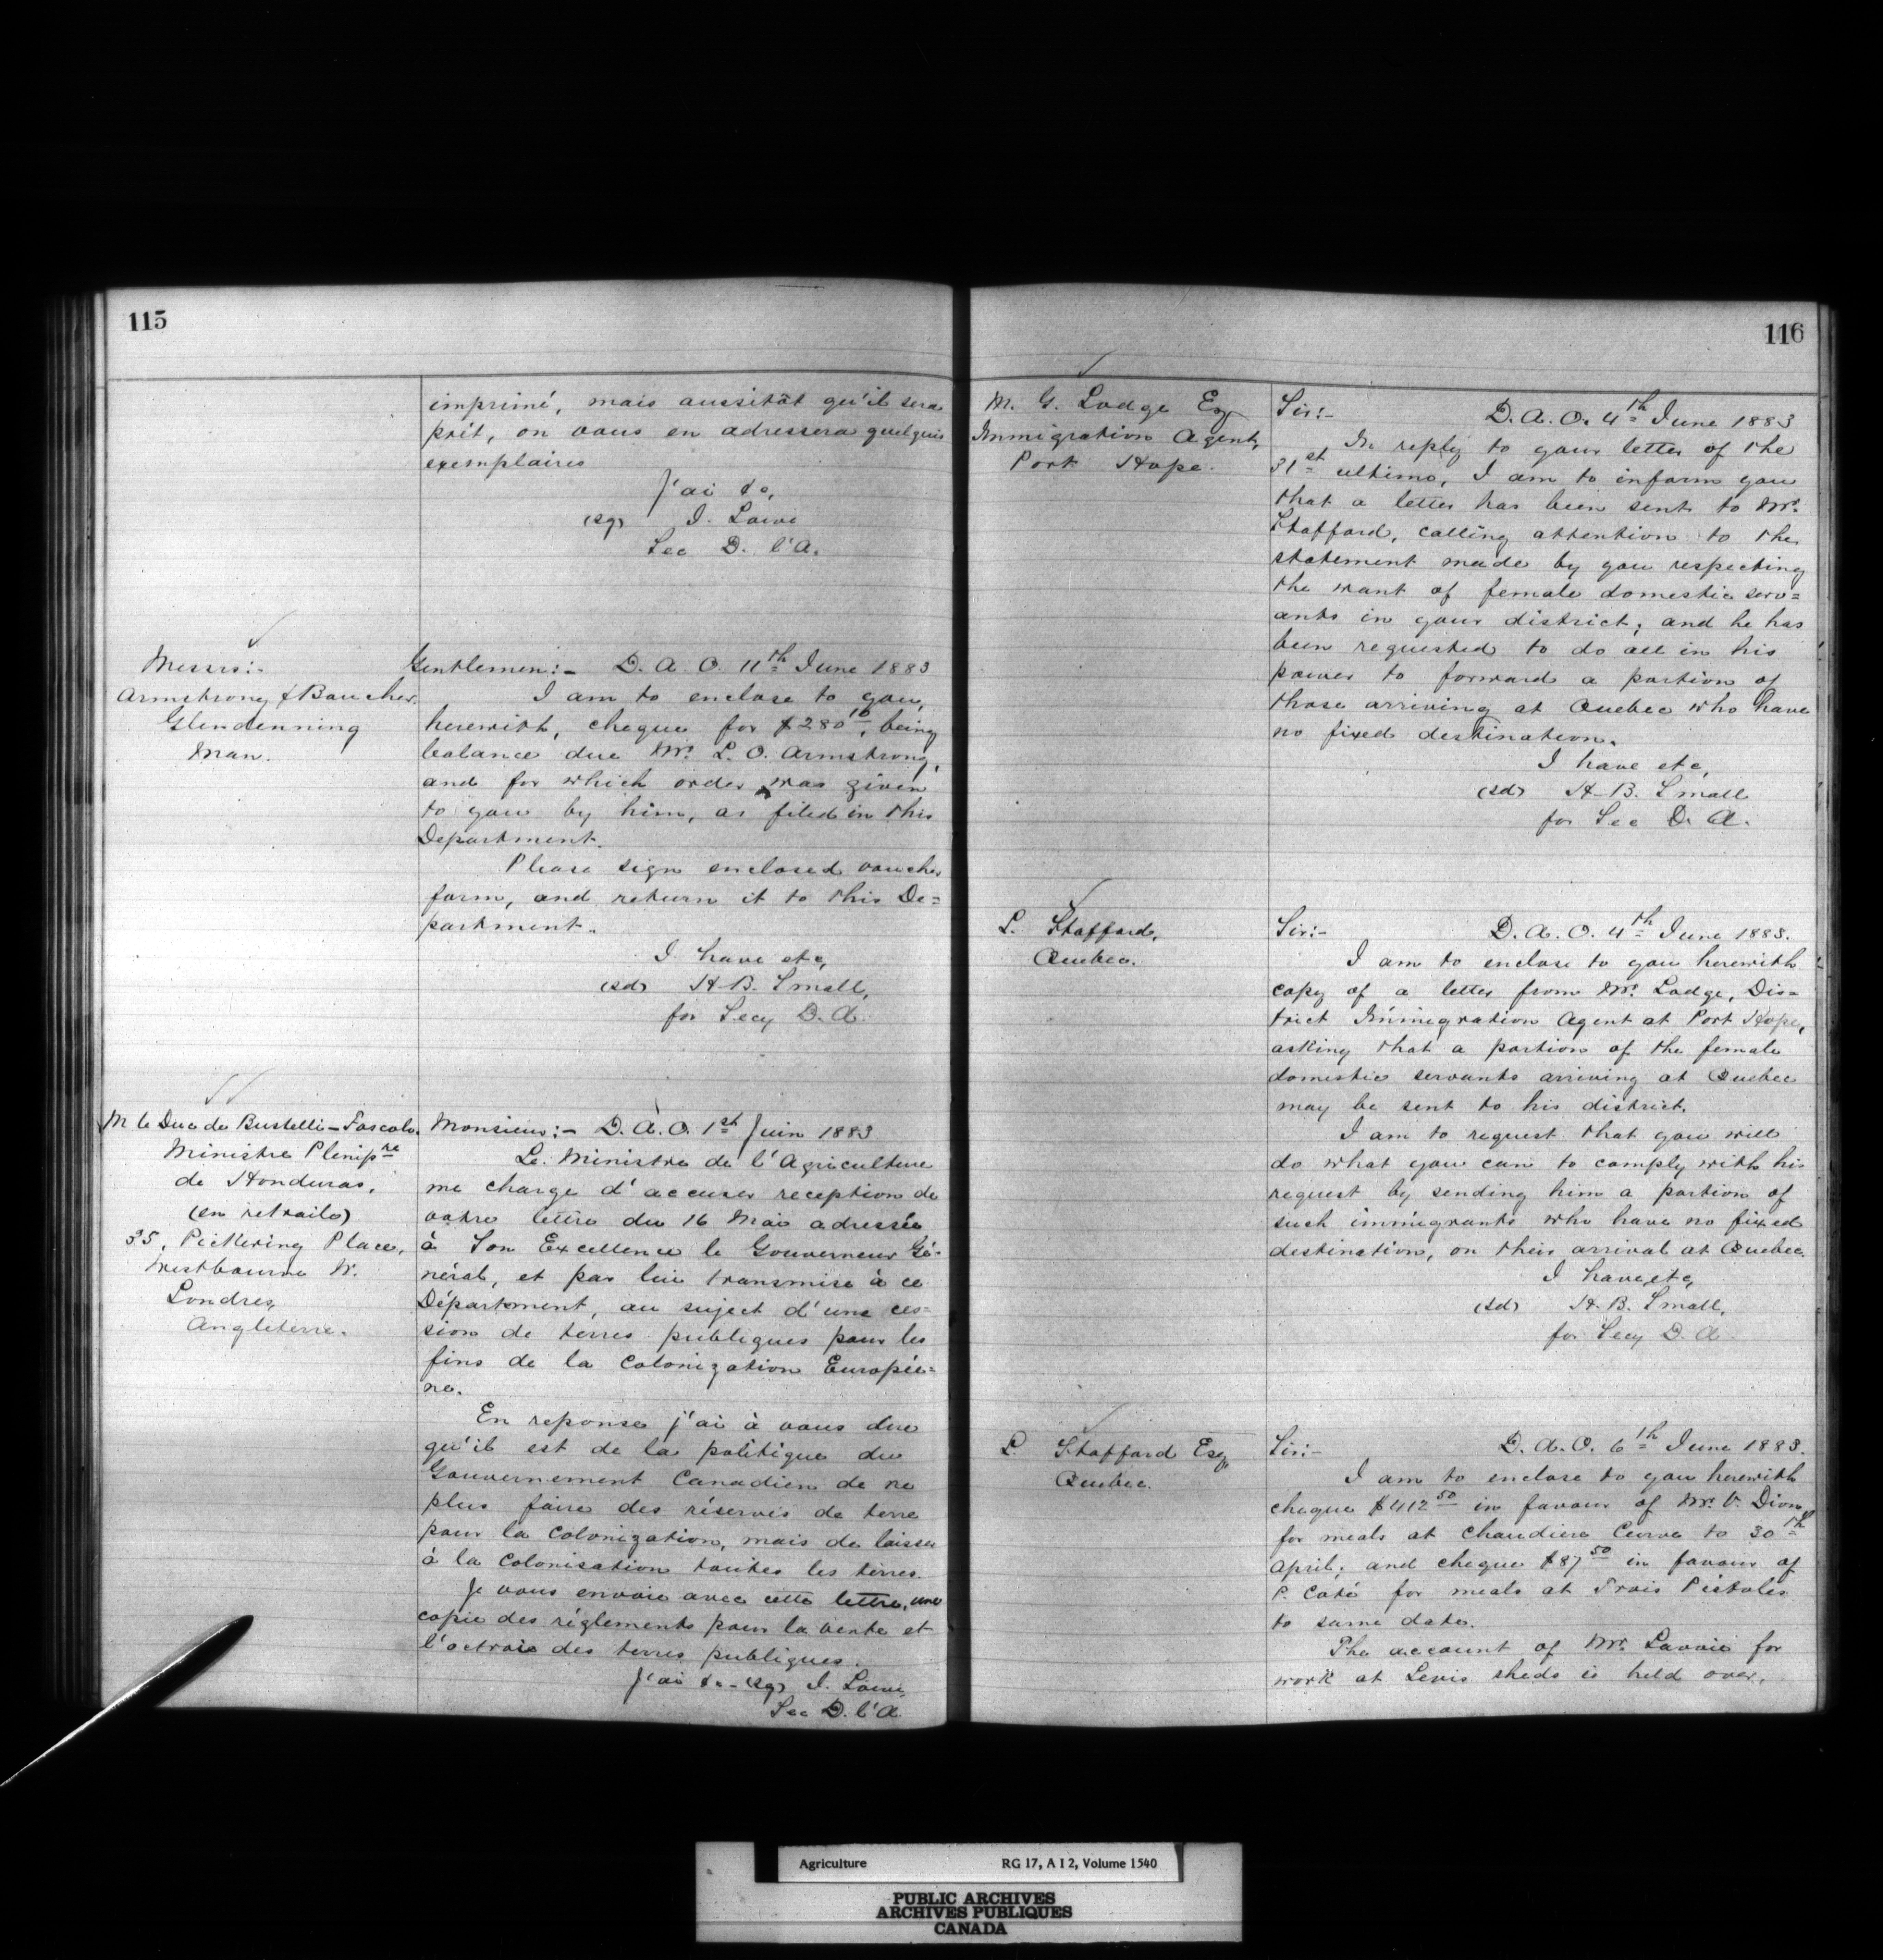 115
imprimé, mais aussitôt qu'il sera
prêt, on vous en adressera quelques
exemplaires
J'ai &c,
(sg) J. Lowe
Sec D. l'A.
Messrs:-
Armstrong & Boucher
Glendenning
Man.
Gentlemen:- D. A. O. 11th June 1883
I am to enclose to you,
herewith, cheque for $280 10, being
balance due Mr. L. O. Armstrong,
and for which order was given
to you by him, as filed in this
Department.
Please sign enclosed voucher
form, and return it to this De=
partment.
I have etc,
(sd) H. B. Small,
for Secy D. A.
M le Duc de Bustelli-Foscolo.
Ministre Plenipre
de Honduras,
(en retraite)
35, Pickering Place,
Westbourne W.
Londres,
Angleterre.
Monsieur:- D. A. O. 1st Juin 1883
Le Ministre de l'Agriculture
me charge d'accuser reception de
votre lettre du 16 Mai adressée
à Son Excellence le Gouverneur Gé-
néral, et par lui transmise à ce
Département, au suject d'une ces=
sion de terres publiques pour les
fins de la Colonization Europée=
ne.
En reponse j'ai à vous dire
qu'il est de la politique du
Gouvernement Canadien de ne
plus faire des réserves de terre
pour la Colonization, mais de laisser
à la Colonisation toutes les terres.
Je vous envoie avec cette lettre, une
copie des réglements pour la vente et
l'octroie des terres publiques.
J'ai &c - (sg) J. Lowe,
Sec D. l'A.
116
M. G. Lodge Esq
Immigration Agent,
Port Hope.
Sir:- D. A. O. 4th June 1883
In reply to your letter of the
31st ultimo, I am to inform you
that a letter has been sent to Mr.
Stafford, calling attention to the
statement made by you respecting
the want of female domestic serv=
ants in your district; and he has
been requested to do all in his
power to forward a portion of
those arriving at Quebec who have
no fixed destination.
I have etc,
(sd) H. B. Small
for Sec D. A.
L. Stafford,
Quebec.
Sir:- D. A. O. 4th June 1883.
I am to enclose to you herewith
copy of a letter from Mr. Lodge, Dis-
trict Immigration Agent at Port Hope,
asking that a portion of the female
domestic servants arriving at Quebec
may be sent to his district.
I am to request that you will
do what you can to comply with his
request by sending him a portion of
such immigrants who have no fixed
destination, on their arrival at Quebec.
I have etc,
(sd) H. B. Small,
for Secy D. A.
L. Stafford Esq,
Quebec.
Sir:- D. A. O. 6th June 1883.
I am to enclose to you herewith
cheque $412 50 in favour of Mr. V. Dionne
for meals at Chaudiere Curve to 30th
April; and cheque $87 50 in favour of
P. Coté for meals at Trois Pistoles
to same date.
The account of Mr. Lavoie for
work at Levis sheds is held over.
Agriculture RG 17, A I 2, Volume 1540
PUBLIC ARCHIVES
ARCHIVES PUBLIQUES
CANADA